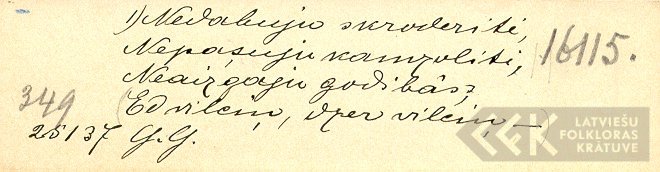 1) Nedabuju skroderiti,
Nepašuju kamzoliti, 16115.
Neaizgaju godibâs;
(Ed vilciņ, dzer vilciņ —)
349
25137 G. G.
LATVIEŠU
FOLKLORAS
KRĀTUVE